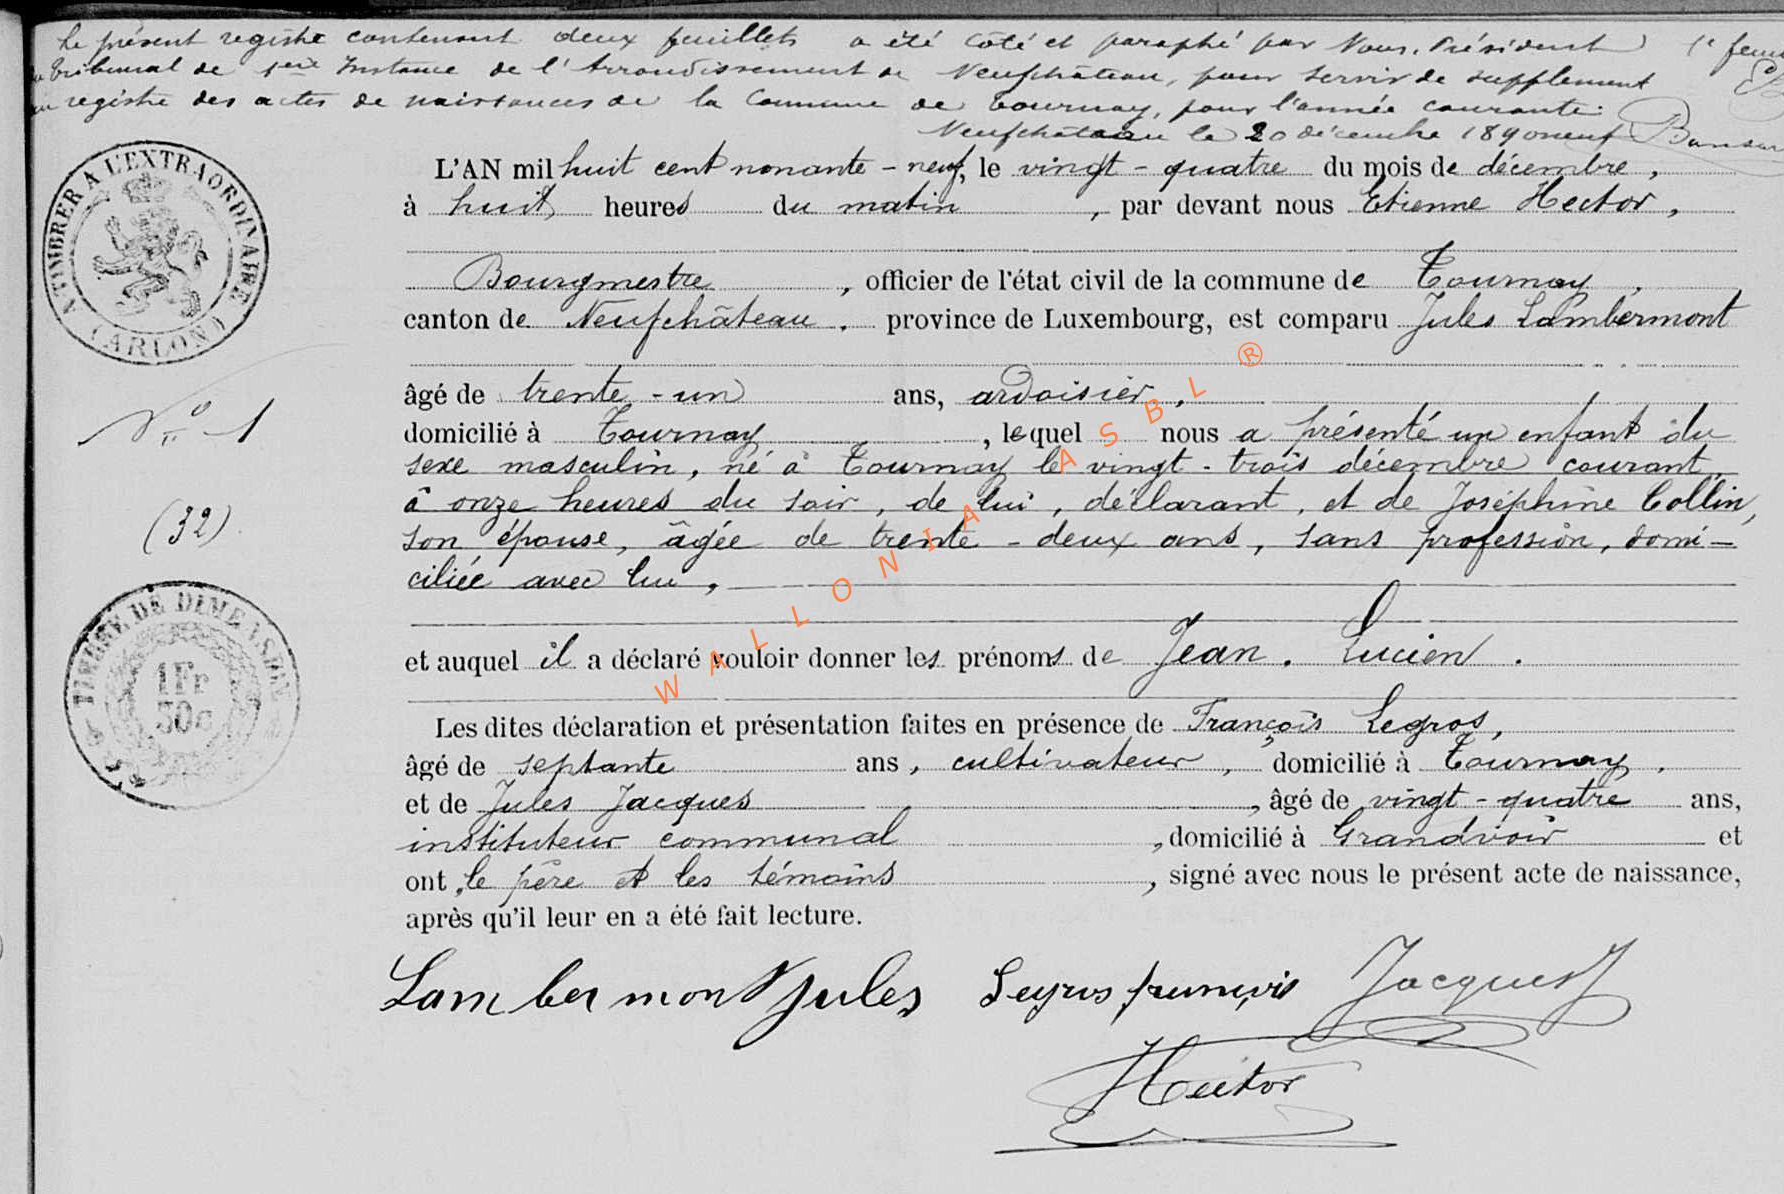 Le présent registre contenant deux feuillets a été coté et paraphé par Nous, Président 1e feuil
du tribunal de 1ère Instance de l'Arrondissement de Neufchâteau, pour servir de supplément
au registre des actes de naissances de la Commune de Tournay, pour l'année courante.
Neufchâteau le 20 décembre 1890neuf
A TIMBRER A L'EXTRAORDINAIRE
(ARLON)
L'AN mil huit cent nonante-neuf, le vingt-quatre du mois de décembre,
à huit heures du matin, par devant nous Etienne Hector,
Bourgmestre, officier de l'état civil de la commune de Tournay,
canton de Neufchâteau, province de Luxembourg, est comparu Jules Lambermont
âgé de trente-un ans, ardoisier,
N° 1
domicilié à Tournay, lequel nous a présenté un enfant du
sexe masculin, né à Tournay le vingt-trois décembre courant,
à onze heures du soir, de lui, déclarant, et de Joséphine Collin,
(32)
son épouse, âgée de trente-deux ans, sans profession, domi-
ciliée avec lui,
TIMBRE DE DIMENSION
1Fr
30c
et auquel il a déclaré vouloir donner les prénoms de Jean. Lucien.
Les dites déclaration et présentation faites en présence de François Legros,
âgé de septante ans, cultivateur, domicilié à Tournay,
et de Jules Jacques, âgé de vingt-quatre ans,
instituteur communal, domicilié à Grandvoir et
ont, le père et les témoins, signé avec nous le présent acte de naissance,
après qu'il leur en a été fait lecture.
Lambermont Jules Legros françois Jacques J
Hector
WALLONIA ASBL ®